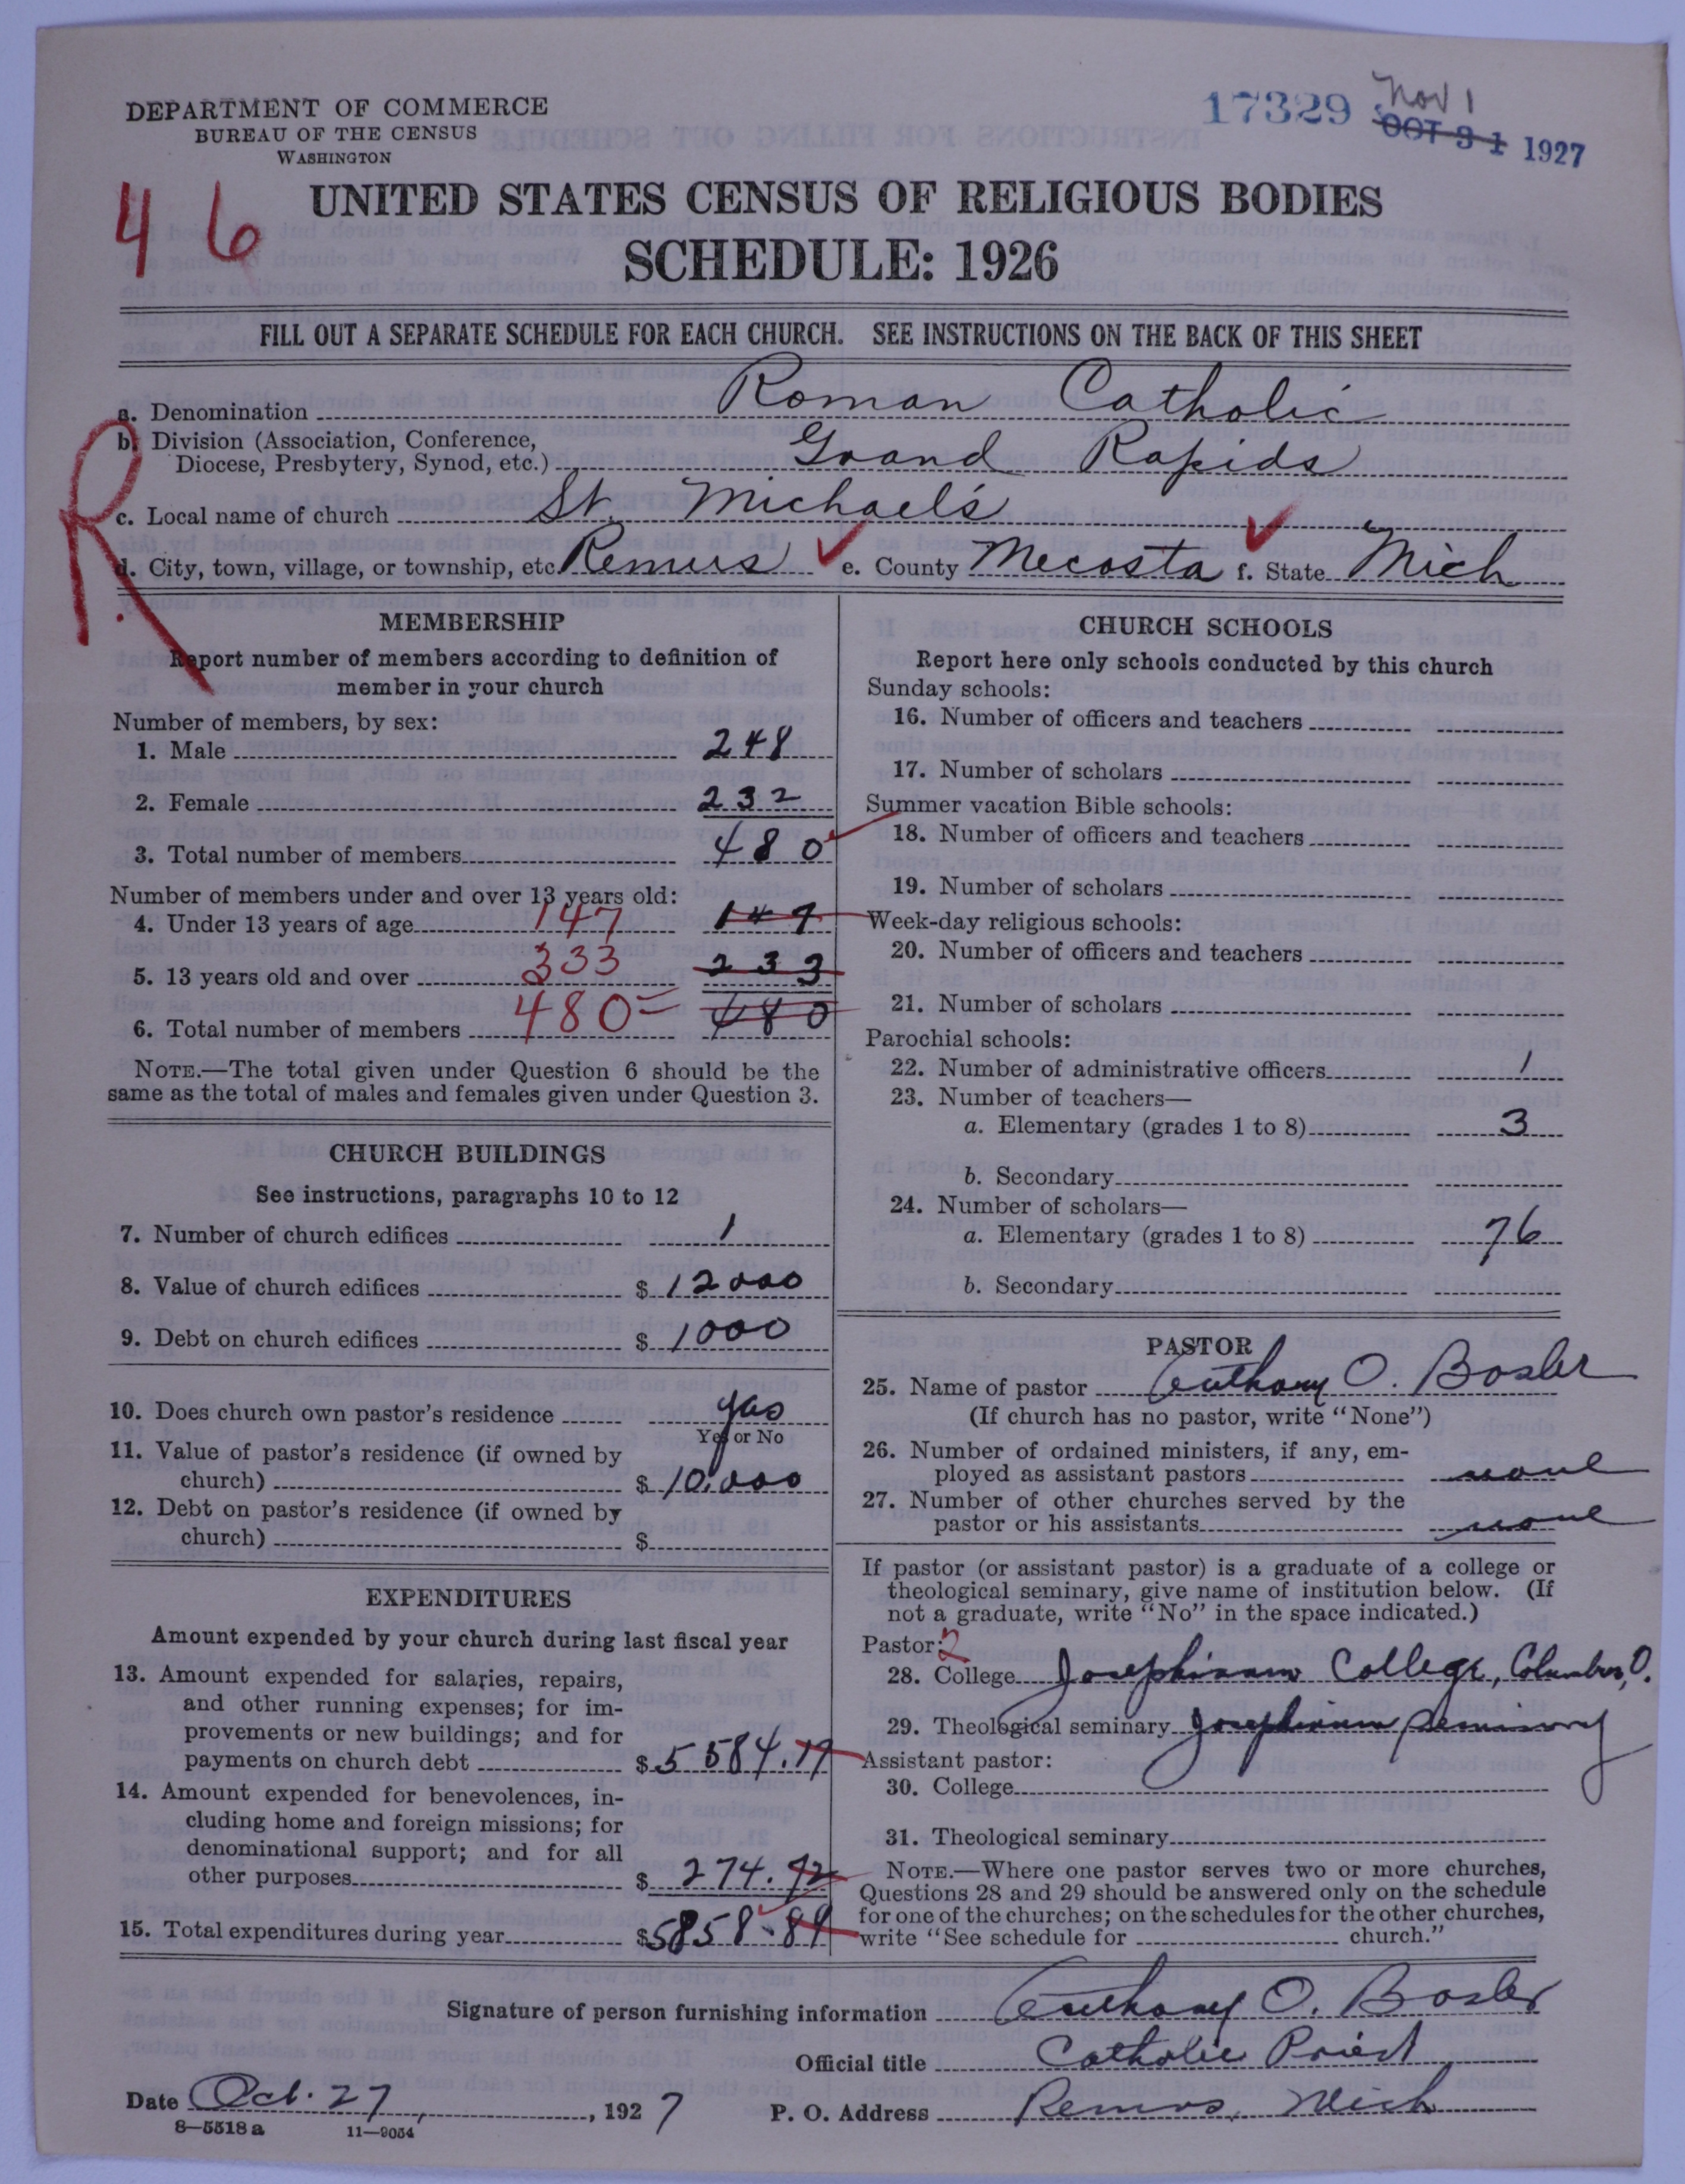 DEPARTMENT OF COMMERCE
BUREAU OF THE CENSUS
WASHINGTON
17329
Nov 1
OCT 31 1927
46
UNITED STATES CENSUS OF RELIGIOUS BODIES
SCHEDULE: 1926
FILL OUT A SEPARATE SCHEDULE FOR EACH CHURCH. SEE INSTRUCTIONS ON THE BACK OF THIS SHEET
R
a. Denomination Roman Catholic
b. Division (Association, Conference,
Diocese, Presbytery, Synod, etc.) Grand Rapids
c. Local name of church St. Michael's
d. City, town, village, or township, etc Remus e. County Mecosta f. State Mich
MEMBERSHIP
Report number of members according to definition of
member in your church
Number of members, by sex:
1. Male 248
2. Female 232
3. Total number of members 480
Number of members under and over 13 years old:
4. Under 13 years of age 147 147
5. 13 years old and over 333 233
6. Total number of members 480 = 480
NOTE.—The total given under Question 6 should be the
same as the total of males and females given under Question 3.
CHURCH BUILDINGS
See instructions, paragraphs 10 to 12
7. Number of church edifices 1
8. Value of church edifices $ 12000
9. Debt on church edifices $ 1000
10. Does church own pastor's residence yes
Yes or No
11. Value of pastor's residence (if owned by
church) $ 10,000
12. Debt on pastor's residence (if owned by
church) $
EXPENDITURES
Amount expended by your church during last fiscal year
13. Amount expended for salaries, repairs,
and other running expenses; for im-
provements or new buildings; and for
payments on church debt $ 5584.17
14. Amount expended for benevolences, in-
cluding home and foreign missions; for
denominational support; and for all
other purposes $ 274.72
15. Total expenditures during year $ 5858.89
CHURCH SCHOOLS
Report here only schools conducted by this church
Sunday schools:
16. Number of officers and teachers
17. Number of scholars
Summer vacation Bible schools:
18. Number of officers and teachers
19. Number of scholars
Week-day religious schools:
20. Number of officers and teachers
21. Number of scholars
Parochial schools:
22. Number of administrative officers 1
23. Number of teachers—
a. Elementary (grades 1 to 8) 3
b. Secondary
24. Number of scholars—
a. Elementary (grades 1 to 8) 76
b. Secondary
PASTOR
25. Name of pastor Anthony O. Bosler
(If church has no pastor, write "None")
26. Number of ordained ministers, if any, em-
ployed as assistant pastors none
27. Number of other churches served by the
pastor or his assistants none
If pastor (or assistant pastor) is a graduate of a college or
theological seminary, give name of institution below. (If
not a graduate, write "No" in the space indicated.)
Pastor: 2
28. College Josephinum College, Columbus, O.
29. Theological seminary Josephinum Seminary
Assistant pastor:
30. College
31. Theological seminary
NOTE.—Where one pastor serves two or more churches,
Questions 28 and 29 should be answered only on the schedule
for one of the churches; on the schedules for the other churches,
write "See schedule for church."
Signature of person furnishing information Anthony O. Bosler
Official title Catholic Priest
Date Oct. 27, 1927 P. O. Address Remus, Mich
8—5518 a 11—9054